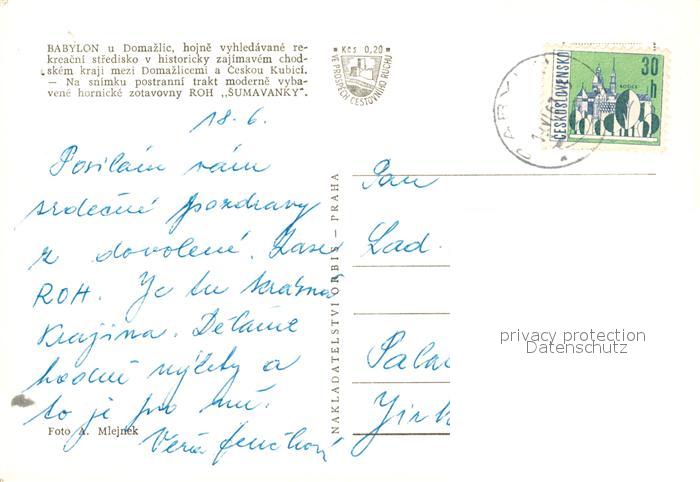 BABYLON u Domažlic, hojně vyhledávané re-
kreační středisko v historicky zajímavém chod-
ském kraji mezi Domažlicemi a Českou Kubicí.
— Na snímku postranní trakt moderně vyba-
vené hornické zotavovny ROH „ŠUMAVANKY".
Kčs 0,20
VE PROSPĚCH CESTOVNÍHO RUCHU
ČESKOSLOVENSKO
30 h
18. 6.
Posílám vám
srdečné pozdravy
z dovolené. Zase
ROH. Je tu krásná
Krajina. Děláme
hodně výlety a
to je pro mě.
Věra
Foto A. Mlejnek
NAKLADATELSTVÍ ORBIS — PRAHA
Pan
Lad.
privacy protection
Datenschutz